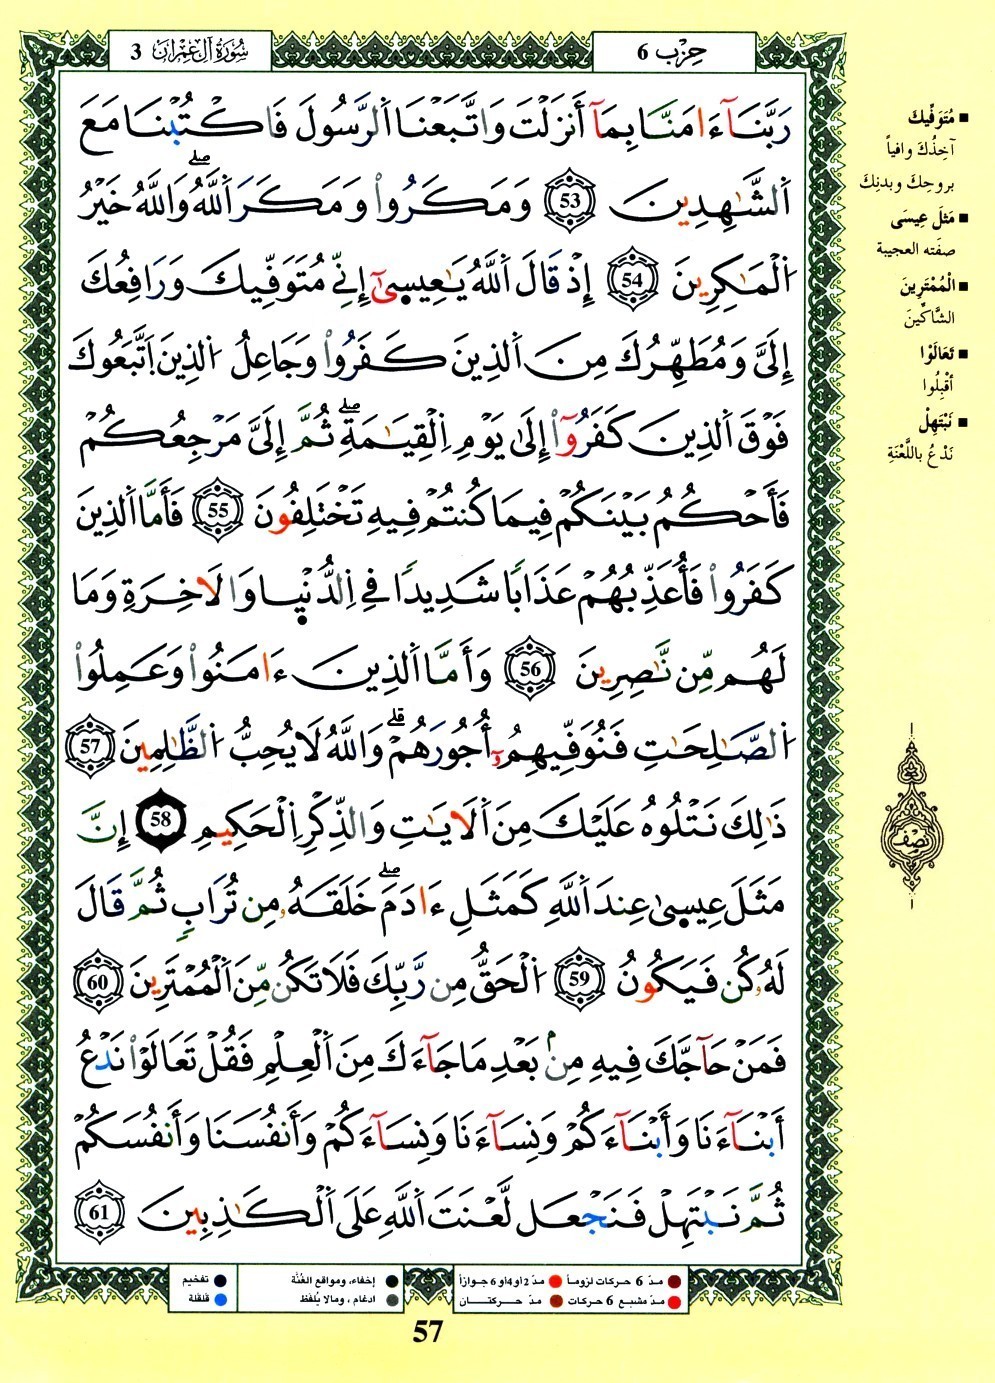 حِزْب 6
سُورَةُ آلِ عِمْرَانَ 3
رَبَّنَآ ءَامَنَّا بِمَآ أَنزَلْتَ وَاتَّبَعْنَا اَلرَّسُولَ فَاكْتُبْنَا مَعَ
اَلشَّٰهِدِينَ 53 وَمَكَرُواْ وَمَكَرَ اَللَّهُۖ وَاللَّهُ خَيْرُ
اُلْمَٰكِرِينَ 54 إِذْ قَالَ اَللَّهُ يَٰعِيسىٰٓ إِنِّے مُتَوَفِّيكَ وَرَافِعُكَ
إِلَيَّ وَمُطَهِّرُكَ مِنَ اَلذِينَ كَفَرُواْ وَجَاعِلُ اُلذِينَ اَتَّبَعُوكَ
فَوْقَ اَلذِينَ كَفَرُوٓاْ إِلَىٰ يَوْمِ اِلْقِيَٰمَةِۖ ثُمَّ إِلَيَّ مَرْجِعُكُمْ
فَأَحْكُمُ بَيْنَكُمْ فِيمَا كُنتُمْ فِيهِ تَخْتَلِفُونَ 55 فَأَمَّا اَلذِينَ
كَفَرُواْ فَأُعَذِّبُهُمْ عَذَابًا شَدِيدًا فِے اِلدُّنْيا وَالَاخِرَةِ وَمَا
لَهُم مِّن نَّٰصِرِينَ 56 وَأَمَّا اَلذِينَ ءَامَنُواْ وَعَمِلُواْ
اُلصَّٰلِحَٰتِ فَنُوَفِّيهِمُۥٓ أُجُورَهُمْۗ وَاللَّهُ لَا يُحِبُّ اُلظَّٰلِمِينَ 57
ذَٰلِكَ نَتْلُوهُ عَلَيْكَ مِنَ اَلَايَٰتِ وَالذِّكْرِ اِلْحَكِيمِ 58 إِنَّ
مَثَلَ عِيسىٰ عِندَ اَللَّهِ كَمَثَلِ ءَادَمَۖ خَلَقَهُۥ مِن تُرَابٍ ثُمَّ قَالَ
لَهُۥ كُن فَيَكُونُ 59 اُلْحَقُّ مِن رَّبِّكَ فَلَا تَكُن مِّنَ اَلْمُمْتَرِينَ 60
فَمَنْ حَآجَّكَ فِيهِ مِنۢ بَعْدِ مَا جَآءَكَ مِنَ اَلْعِلْمِ فَقُلْ تَعَالَوْاْ نَدْعُ
أَبْنَآءَنَا وَأَبْنَآءَكُمْ وَنِسَآءَنَا وَنِسَآءَكُمْ وَأَنفُسَنَا وَأَنفُسَكُمْ
ثُمَّ نَبْتَهِلْ فَنَجْعَل لَّعْنَتَ اَللَّهِ عَلَى اَلْكَٰذِبِينَ 61
■ مُتَوَفِّيكَ
آخِذُكَ وافياً
بروحِكَ وبدنِكَ
■ مَثَلَ عِيسَى
صفَته العجيبة
■ الْمُمْتَرِينَ
الشَّاكِّينَ
■ تَعَالَوْا
أقْبِلُوا
■ نَبْتَهِلْ
نَدْعُ باللَّعْنَةِ
نِصْف
● مدّ 6 حركات لزوماً ● مدّ 2 أو 4 أو 6 جوازاً
● مدّ مشبع 6 حركات ● مدّ حركتان
● إخفاء، ومواقع الغُنَّة
● ادغام، ومالا يُلفظ
● تفخيم
● قلقلة
57